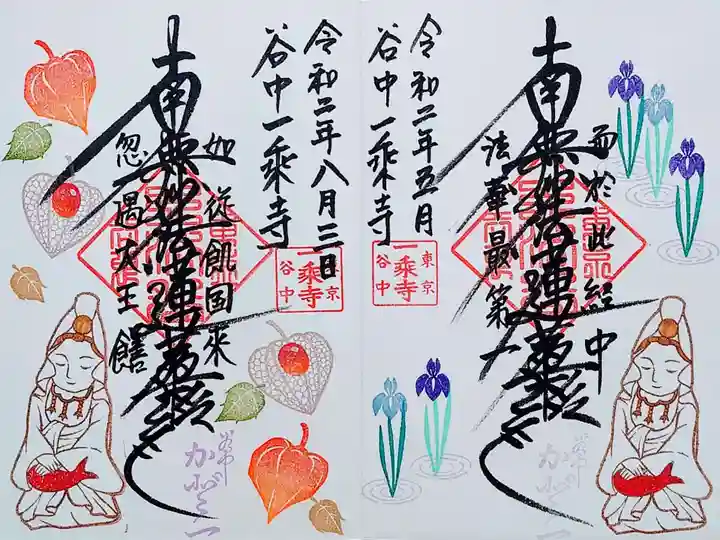 而於此経中
南無妙法蓮華経
法華最第一
令和二年五月
谷中一乗寺
東京
一乗寺
谷中
令和二年八月三日
谷中一乗寺
東京
一乗寺
谷中
如従飢国来
南無妙法蓮華経
忽遇大王饍